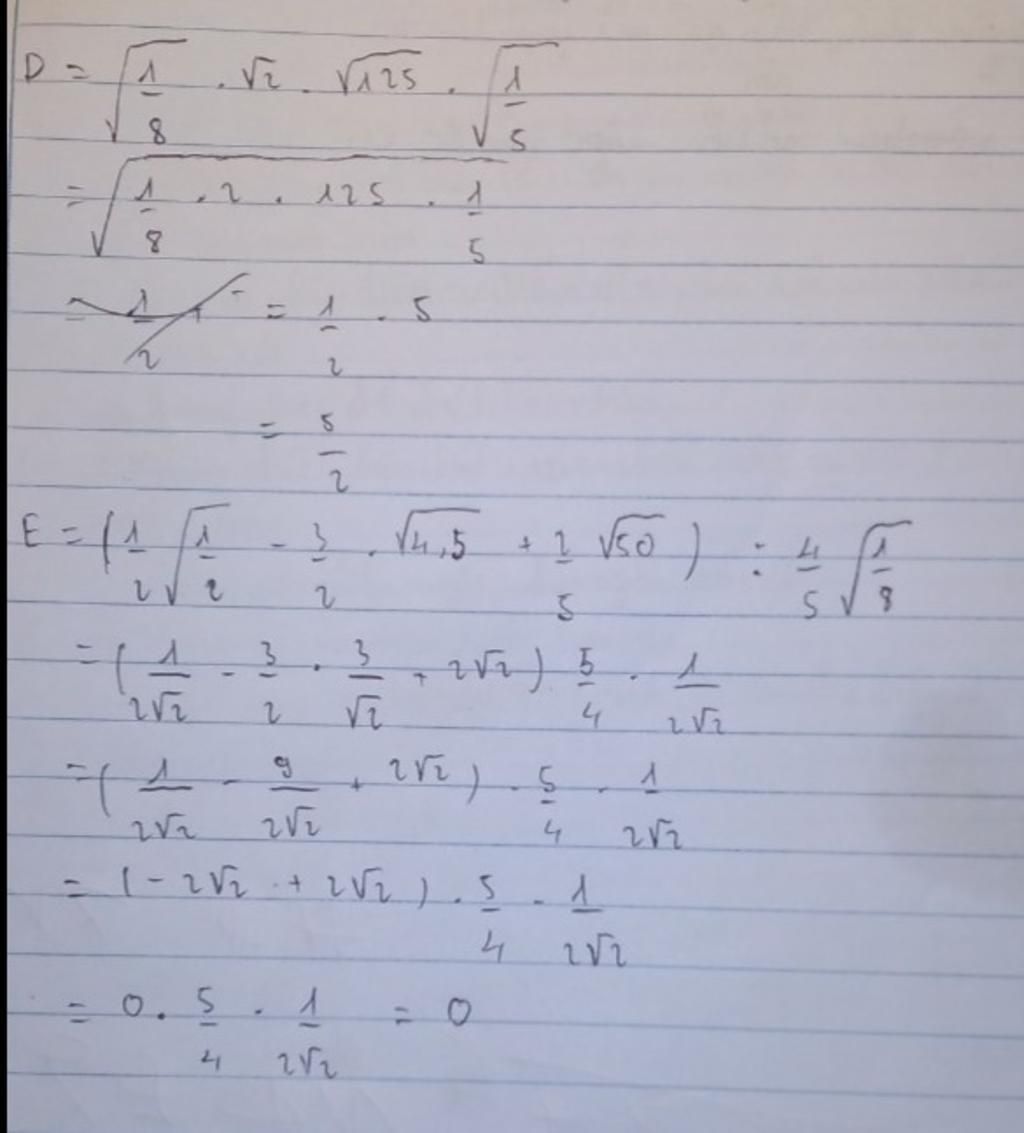 D = √(1/8) . √2 . √125 . √(1/5)
= √(1/8 . 2 . 125 . 1/5)
= 1/2 . 5
= 5/2
E = (1/2 √(1/2) - 3/2 . √4,5 + 2/5 √50) : 4/5 √(1/8)
= (1/(2√2) - 3/2 . 3/√2 + 2√2) 5/4 . 1/(2√2)
= (1/(2√2) - 9/(2√2) + 2√2) . 5/4 . 1/(2√2)
= (-2√2 + 2√2) . 5/4 . 1/(2√2)
= 0 . 5/4 . 1/(2√2) = 0